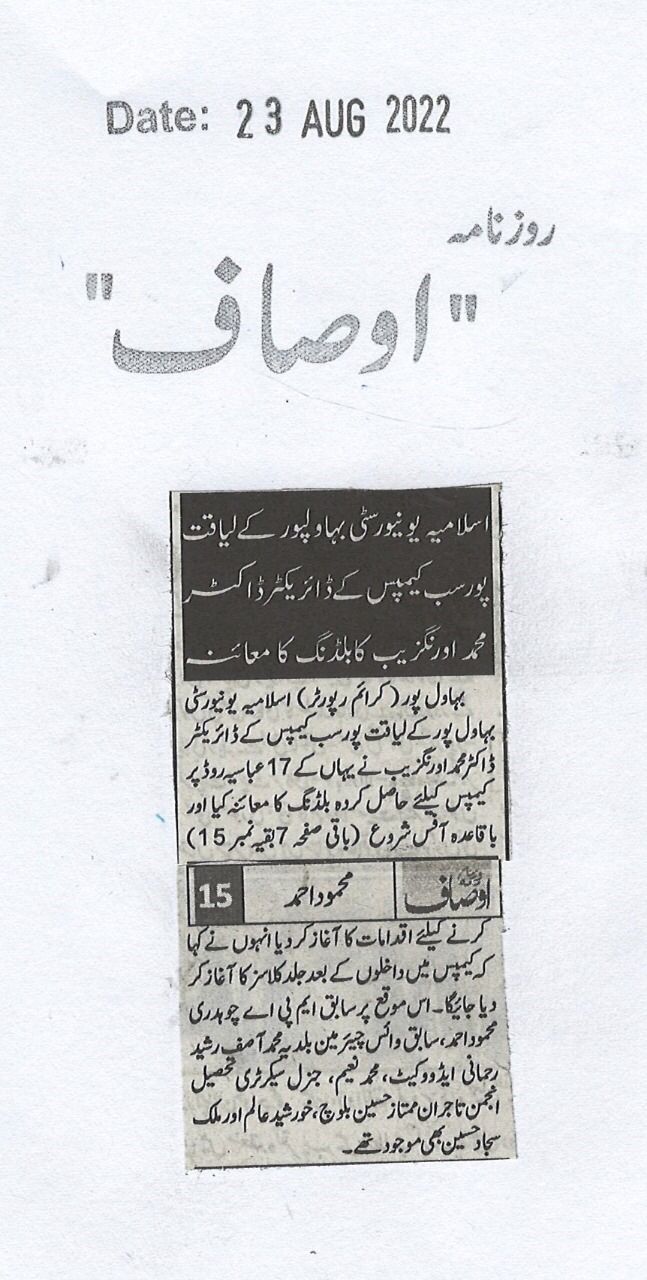 Date: 23 AUG 2022
روزنامہ
"اوصاف"
اسلامیہ یونیورسٹی بہاولپور کے لیاقت
پور سب کیمپس کے ڈائریکٹر ڈاکٹر
محمد اورنگزیب کا بلڈنگ کا معائنہ
بہاول پور (کرائم رپورٹر) اسلامیہ یونیورسٹی
بہاول پور کے لیاقت پور سب کیمپس کے ڈائریکٹر
ڈاکٹر محمد اورنگزیب نے یہاں کے 17 عباسیہ روڈ پر
کیمپس کیلئے حاصل کردہ بلڈنگ کا معائنہ کیا اور
باقاعدہ آفس شروع (باقی صفحہ 7 بقیہ نمبر 15)
اوصاف محمود احمد 15
کرنے کیلئے اقدامات کا آغاز کر دیا انہوں نے کہا
کہ کیمپس میں داخلوں کے بعد جلد کلاسز کا آغاز کر
دیا جائیگا۔ اس موقع پر سابق ایم پی اے چوہدری
محمود احمد، سابق وائس چیئرمین بلدیہ محمد آصف رشید
رحمانی ایڈووکیٹ، محمد نعیم، جنرل سیکرٹری تحصیل
انجمن تاجران ممتاز حسین بلوچ، خورشید عالم اور ملک
سجاد حسین بھی موجود تھے۔